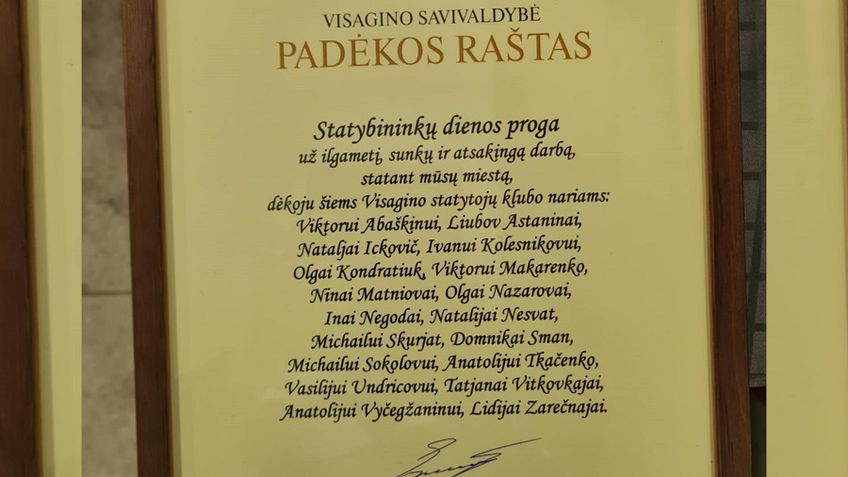 VISAGINO SAVIVALDYBĖ
PADĖKOS RAŠTAS
Statybininkų dienos proga
už ilgametį, sunkų ir atsakingą darbą,
statant mūsų miestą,
dėkoju šiems Visagino statytojų klubo nariams:
Viktorui Abaškinui, Liubov Astaninai,
Nataljai Ickovič, Ivanui Kolesnikovui,
Olgai Kondratiuk, Viktorui Makarenko,
Ninai Matniovai, Olgai Nazarovai,
Inai Negodai, Natalijai Nesvat,
Michailui Skurjat, Domnikai Sman,
Michailui Sokolovui, Anatolijui Tkačenko,
Vasilijui Undricovui, Tatjanai Vitkovkajai,
Anatolijui Vyčegžaninui, Lidijai Zarečnajai.